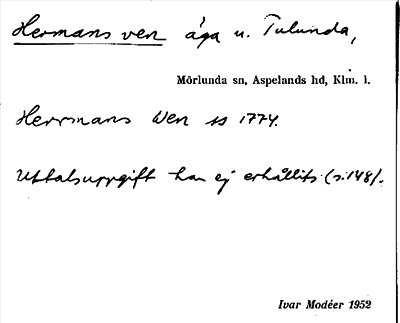 Hermans ven äga u. Tulunda,
Mörlunda sn, Aspelands hd, Klm. l.
Herrmans Wen ss 1774.
Uttalsuppgift har ej erhållits (s. 148).
Ivar Modéer 1952